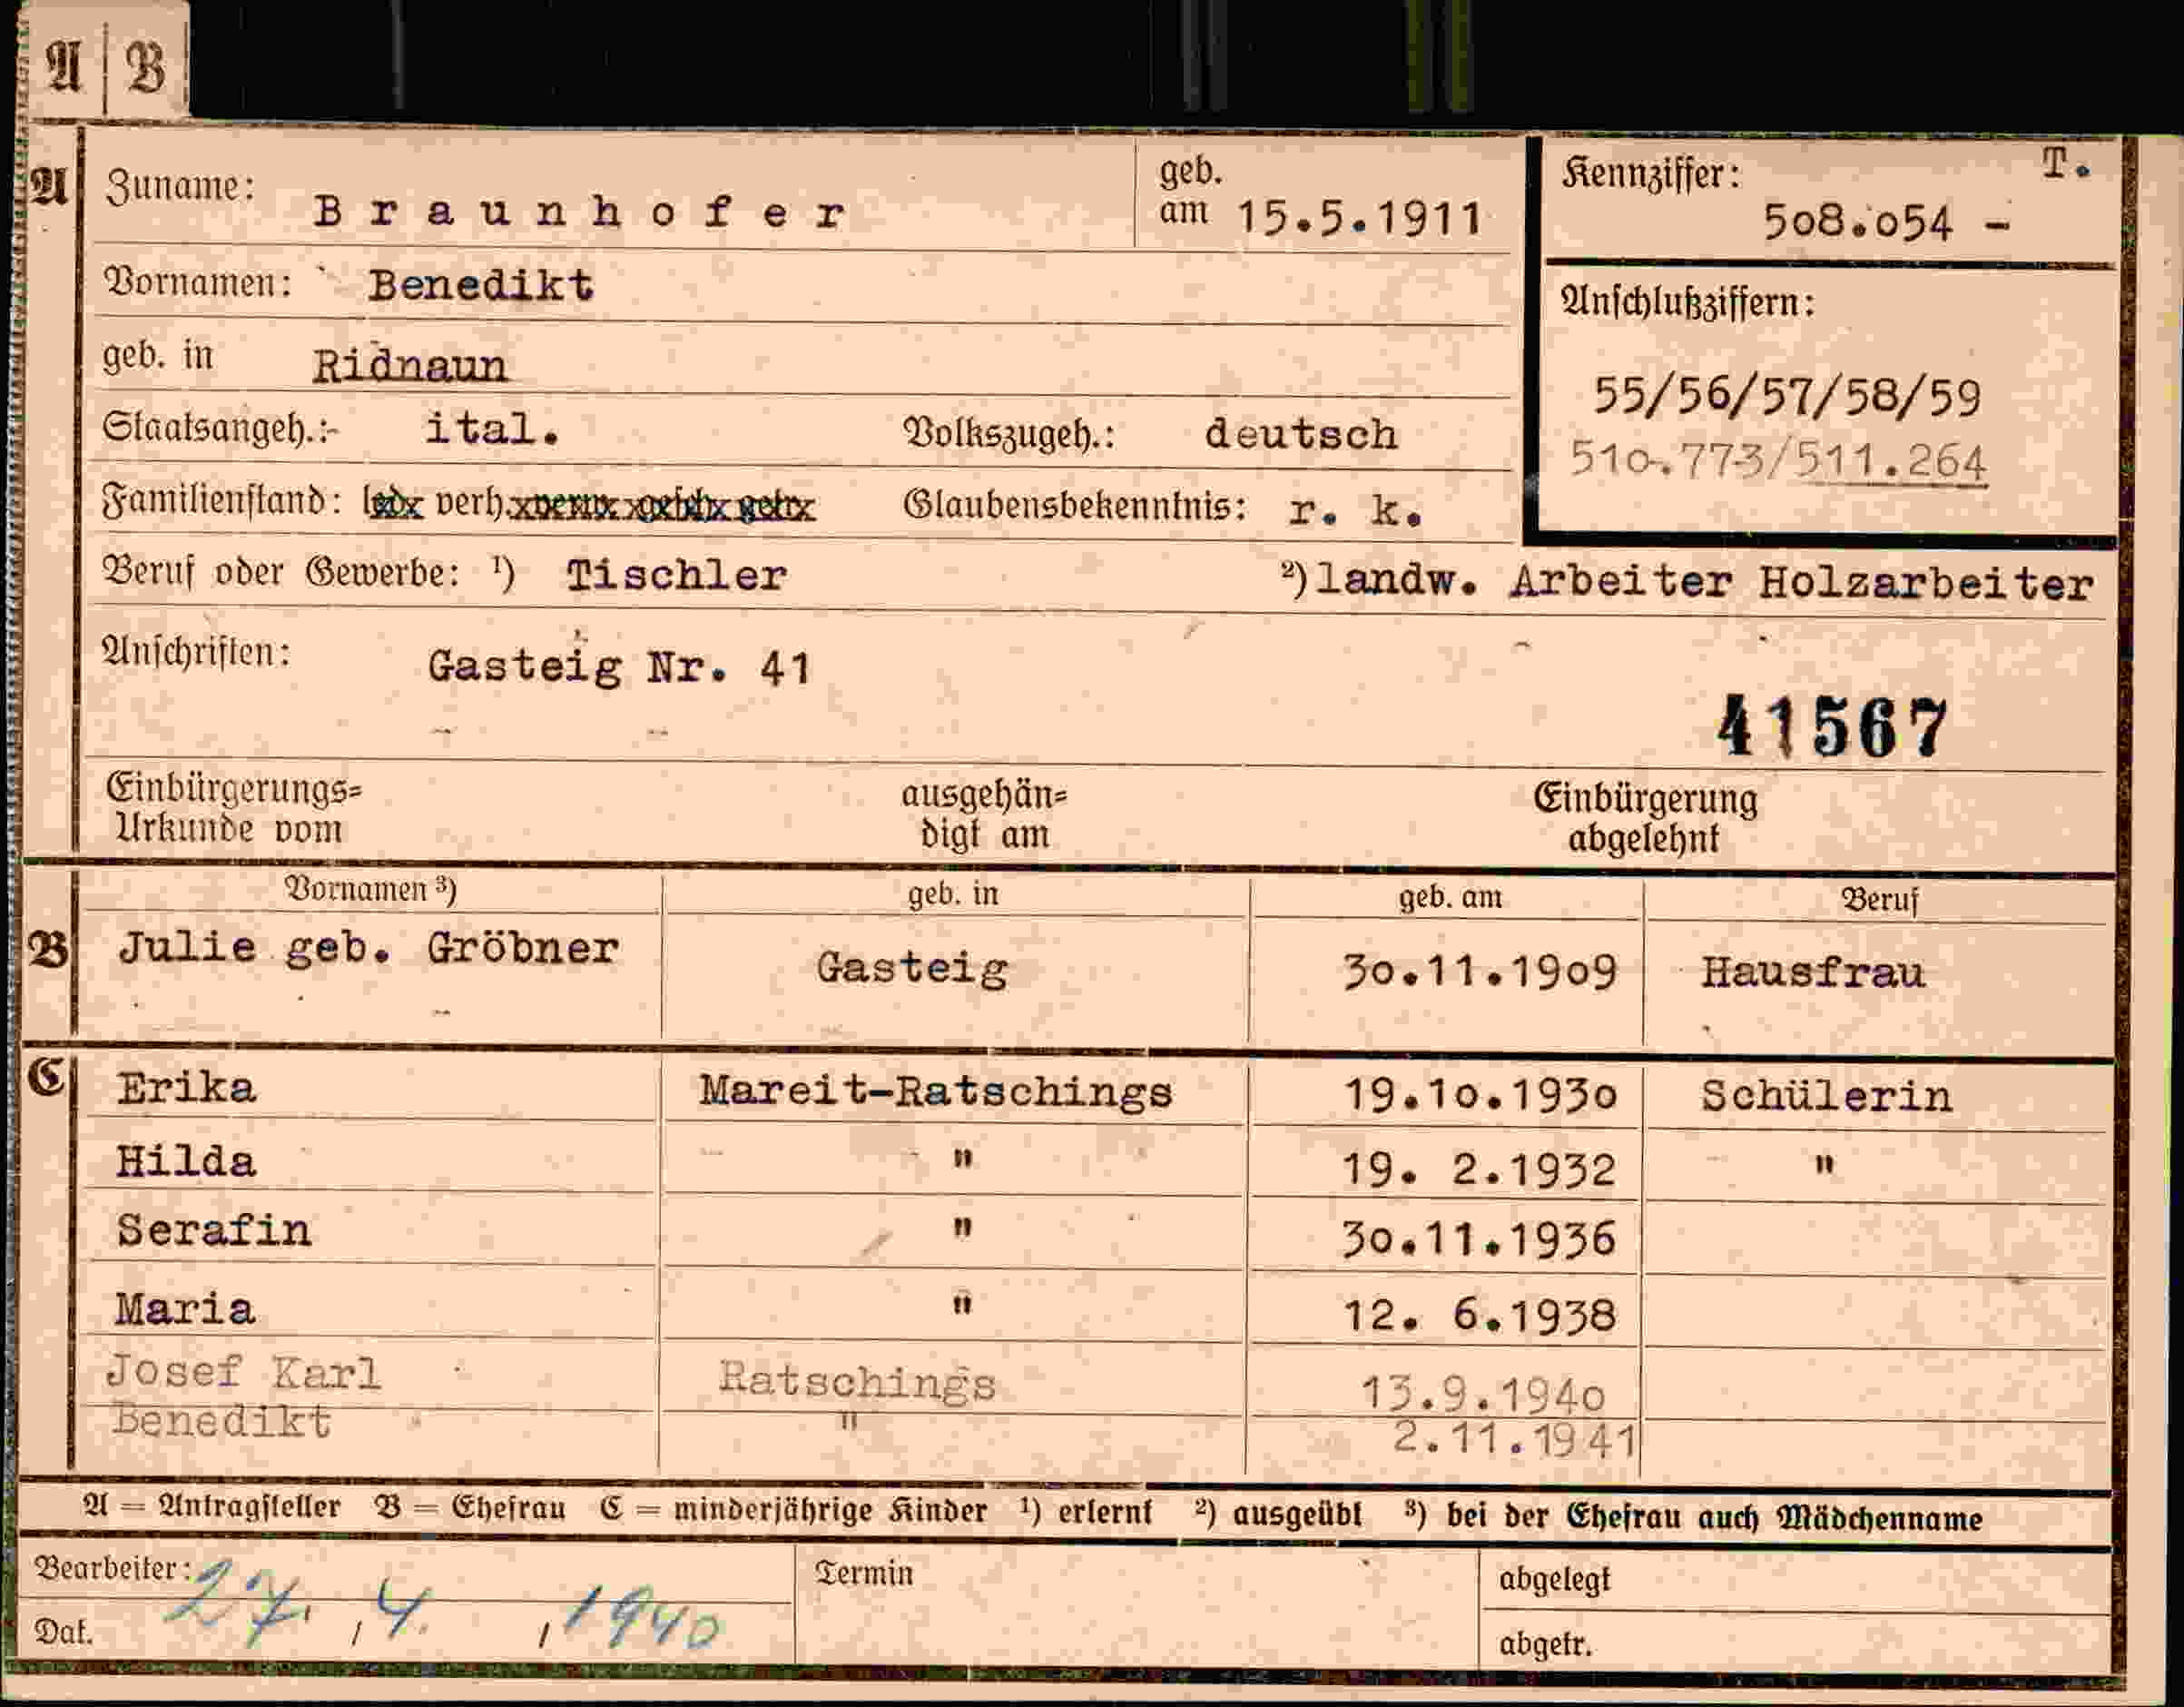 A B
A Zuname: Braunhofer geb. am 15.5.1911 Kennziffer: T. 508.054 -
Vornamen: Benedikt
Anschlußziffern:
geb. in Ridnaun
55/56/57/58/59
Staatsangeh.:- ital. Volkszugeh.: deutsch
510.773/511.264
Familienstand: verh. Glaubensbekenntnis: r. k.
Beruf oder Gewerbe: ¹) Tischler ²) landw. Arbeiter Holzarbeiter
Anschriften: Gasteig Nr. 41
41567
Einbürgerungs= ausgehän= Einbürgerung
Urkunde vom digt am abgelehnt
Vornamen ³) geb. in geb. am Beruf
B Julie geb. Gröbner Gasteig 30.11.1909 Hausfrau
C Erika Mareit-Ratschings 19.10.1930 Schülerin
Hilda " 19. 2.1932 "
Serafin " 30.11.1936
Maria " 12. 6.1938
Josef Karl Ratschings 13.9.1940
Benedikt " 2.11.1941
A = Antragsteller B = Ehefrau C = minderjährige Kinder ¹) erlernt ²) ausgeübt ³) bei der Ehefrau auch Mädchenname
Bearbeiter: Termin abgelegt
Dat. 27. 4. 1940 abgetr.